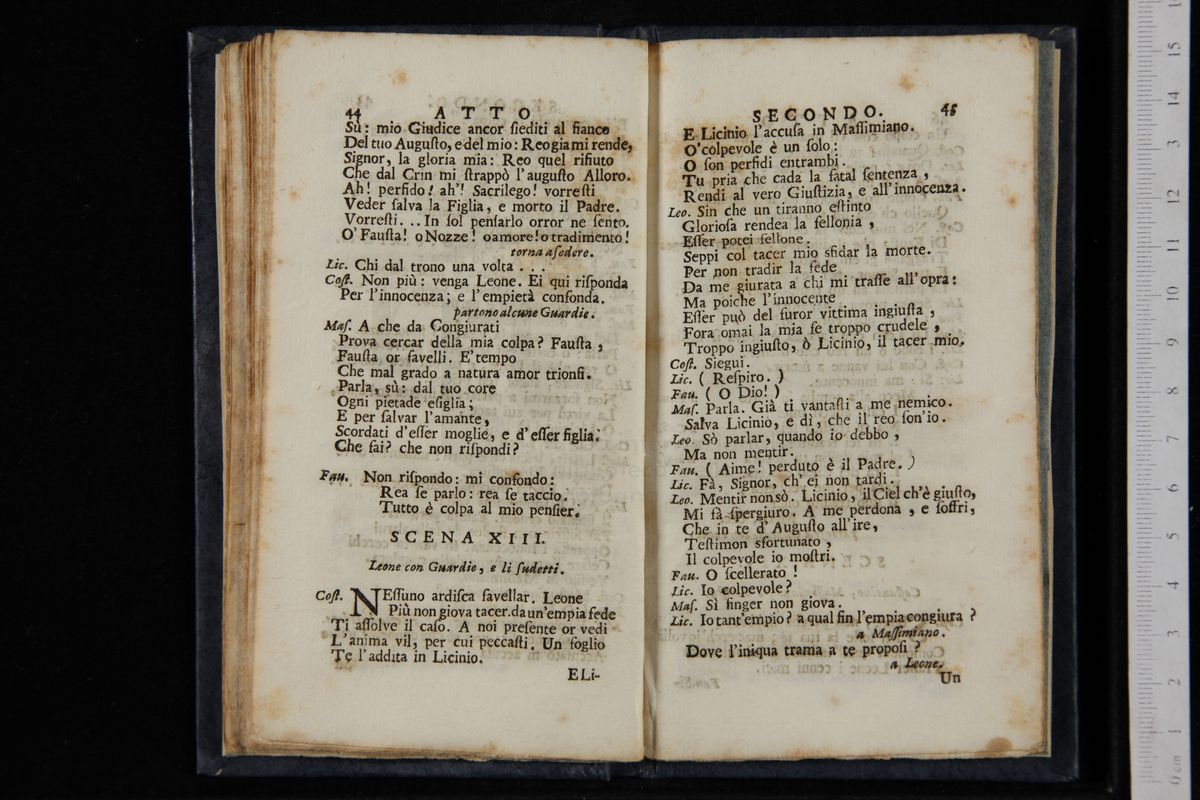 44 ATTO
Sù: mio Giudice ancor ſiediti al fianco
Del tuo Auguſto, e del mio: Reo gia mi rende,
Signor, la gloria mia: Reo quel rifiuto
Che dal Crin mi ſtrappò l'auguſto Alloro.
Ah! perfido! ah'! Sacrilego! vorreſti
Veder ſalva la Figlia, e morto il Padre.
Vorreſti. .. In ſol penſarlo orror ne ſento.
O' Fauſta! o Nozze! o amore! o tradimento!
torna a ſedere.
Lic. Chi dal trono una volta . . .
Coſt. Non più: venga Leone. Ei qui riſponda
Per l'innocenza; e l'empietà confonda.
partono alcune Guardie.
Maſ. A che da Congiurati
Prova cercar della mia colpa? Fauſta,
Fauſta or favelli. E' tempo
Che mal grado a natura amor trionfi.
Parla, sù: dal tuo core
Ogni pietade eſiglia;
E per ſalvar l'amante,
Scordati d'eſſer moglie, e d'eſſer figlia.
Che fai? che non riſpondi?
Fau. Non riſpondo: mi confondo:
Rea ſe parlo: rea ſe taccio.
Tutto è colpa al mio penſier.
SCENA XIII.
Leone con Guardie, e li ſudetti.
Coſt. NEſſuno ardiſca favellar. Leone
Più non giova tacer. da un'empia fede
Ti aſſolve il caſo. A noi preſente or vedi
L'anima vil, per cui peccaſti. Un foglio
Te l'addita in Licinio.
E Li-
SECONDO. 45
E Licinio l'accuſa in Maſſimiano.
O' colpevole è un ſolo:
O ſon perfidi entrambi.
Tu pria che cada la fatal ſentenza,
Rendi al vero Giuſtizia, e all'innocenza.
Leo. Sin che un tiranno eſtinto
Glorioſa rendea la fellonia,
Eſſer potei fellone.
Seppi col tacer mio sfidar la morte.
Per non tradir la fede
Da me giurata a chi mi traſſe all'opra:
Ma poiche l'innocente
Eſſer può del furor vittima ingiuſta,
Fora omai la mia fe troppo crudele,
Troppo ingiuſto, ò Licinio, il tacer mio.
Coſt. Siegui.
Lic. ( Reſpiro. )
Fau. ( O Dio! )
Maſ. Parla. Già ti vantaſti a me nemico.
Salva Licinio, e dì, che il reo ſon'io.
Leo. Sò parlar, quando io debbo,
Ma non mentir.
Fau. ( Aime! perduto è il Padre. )
Lic. Fà, Signor, ch' ei non tardi.
Leo. Mentir non sò. Licinio, il Ciel ch'è giuſto,
Mi fà ſpergiuro. A me perdona, e ſoffri,
Che in te d'Auguſto all'ire,
Teſtimon sfortunato,
Il colpevole io moſtri.
Fau. O ſcellerato!
Lic. Io colpevole?
Maſ. Sì finger non giova.
Lic. Io tant'empio? a qual fin l'empia congiura?
a Maſſimiano.
Dove l'iniqua trama a te propoſi?
a Leone.
Un